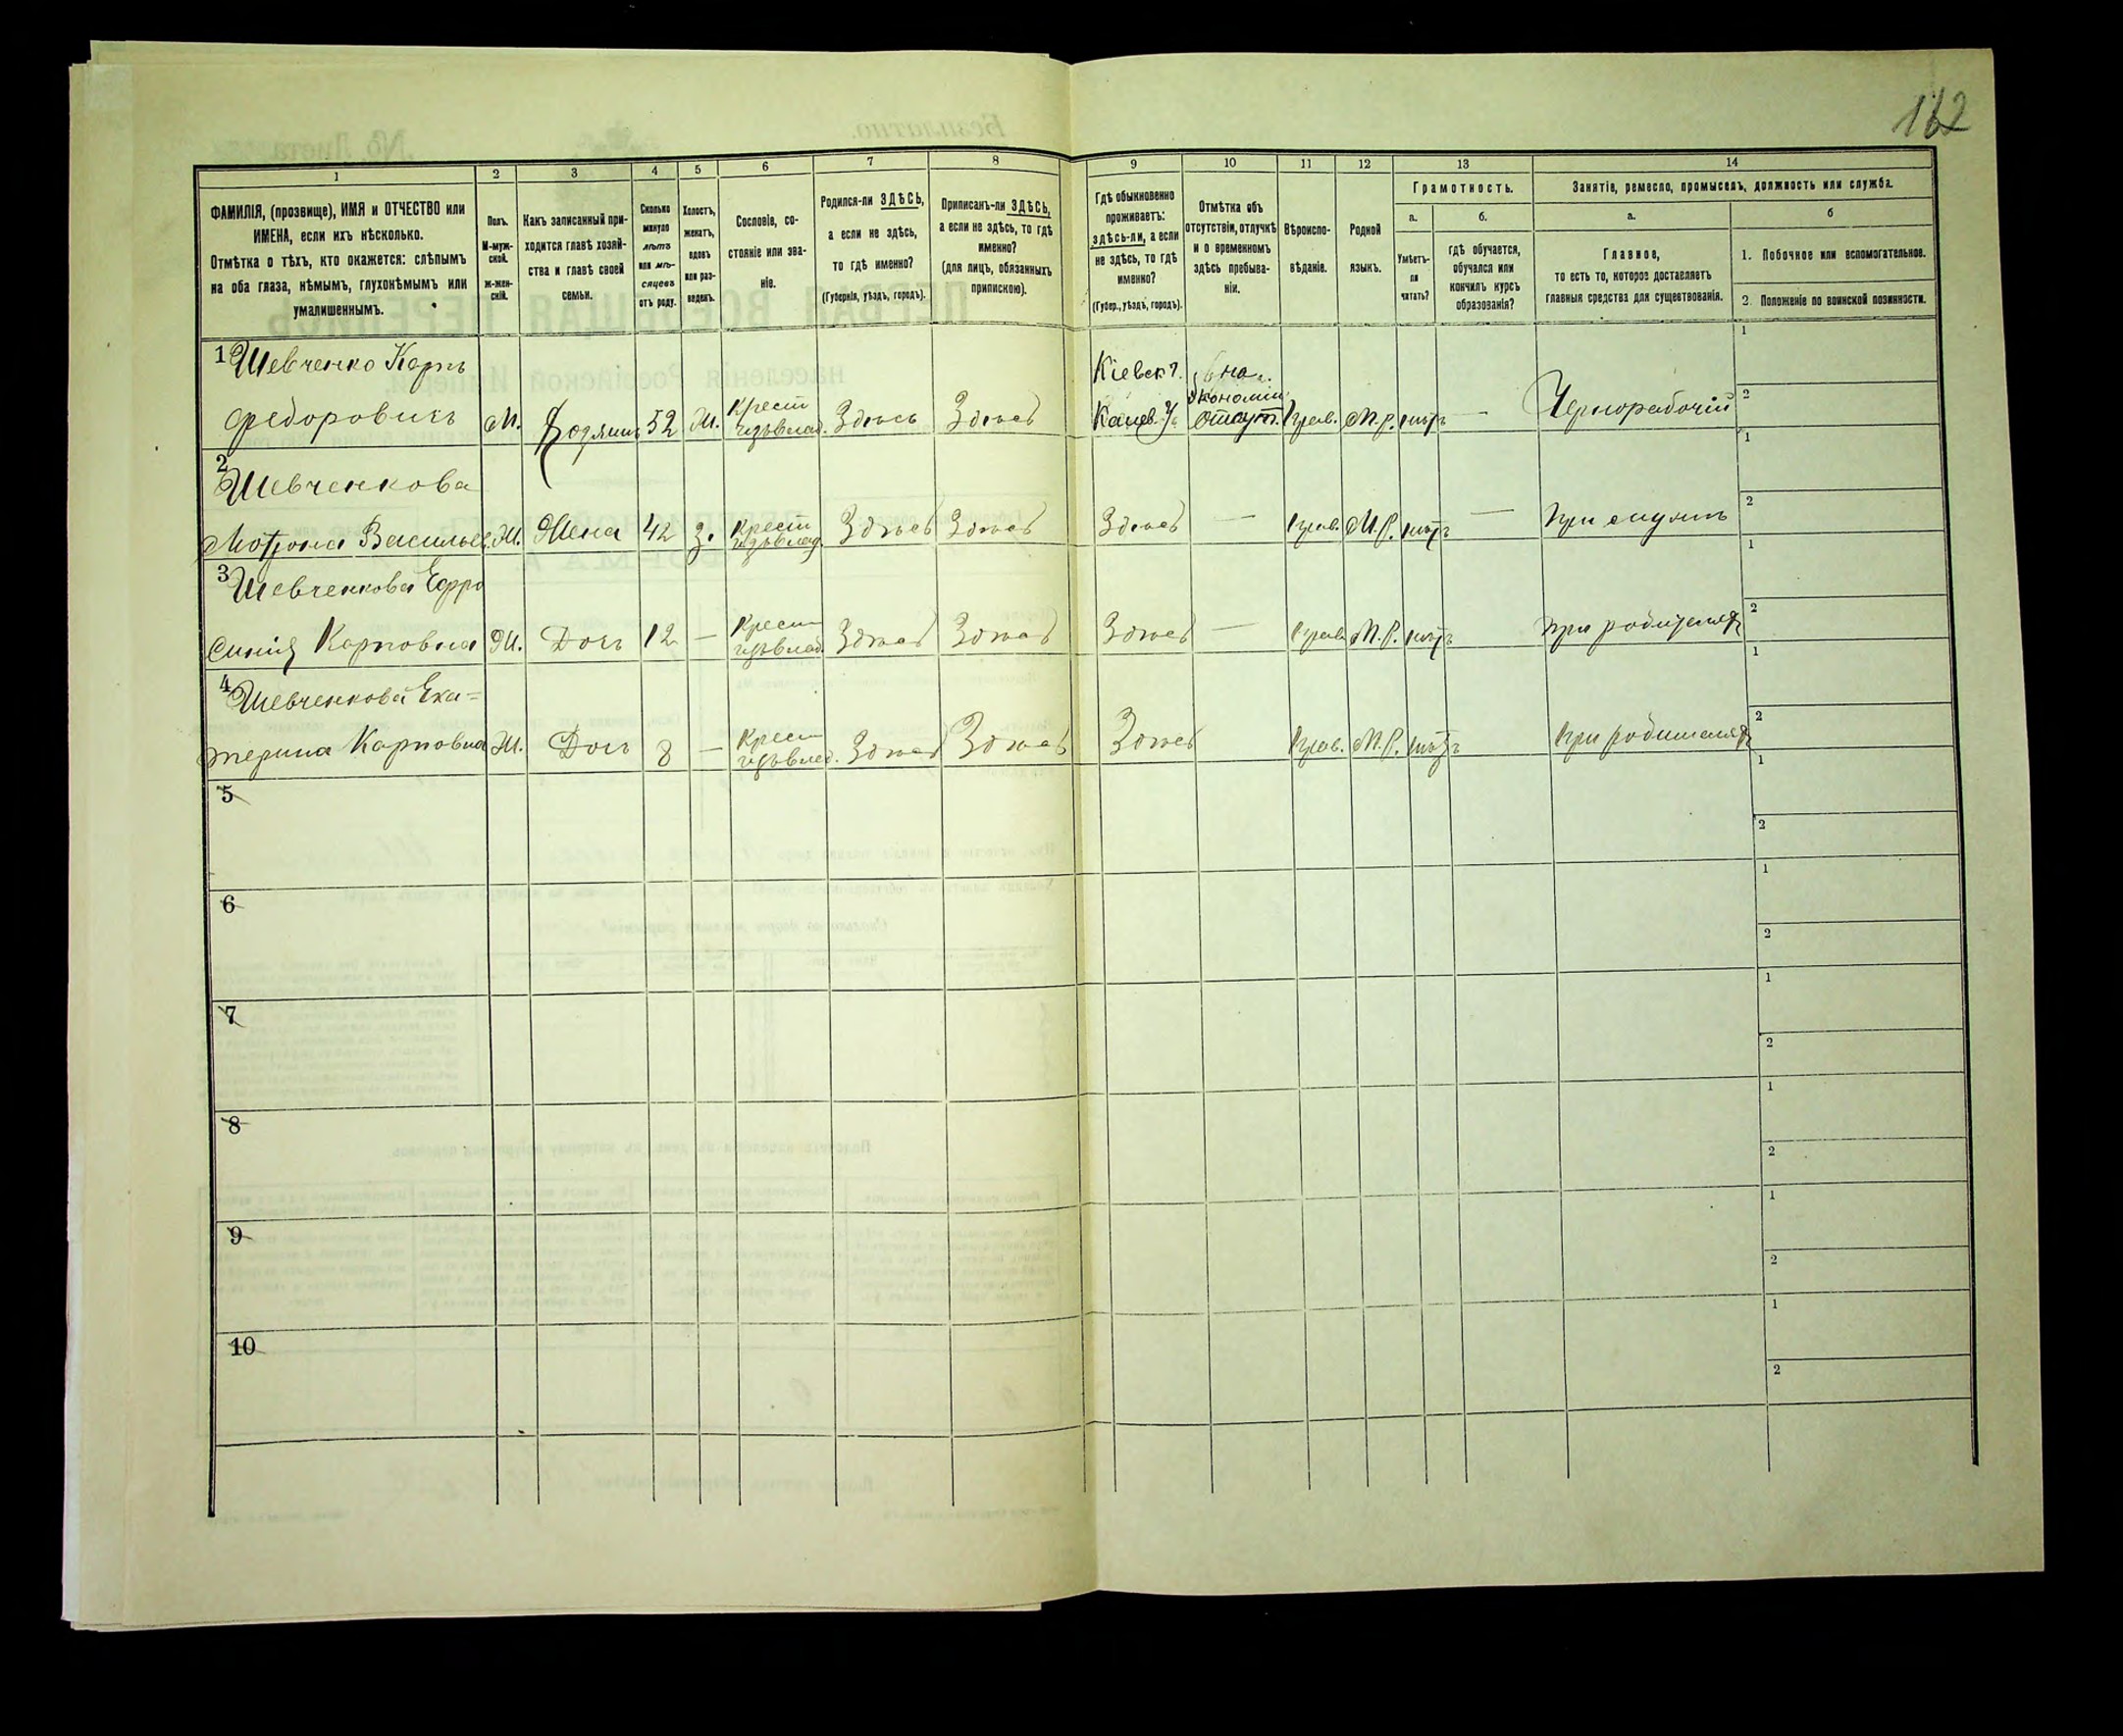 162
1
2
3
4
5
6
7
8
9
10
11
12
13
14
ФАМИЛІЯ, (прозвище), ИМЯ и ОТЧЕСТВО или
ИМЕНА, если ихъ нѣсколько.
Отмѣтка о тѣхъ, кто окажется: слѣпымъ
на оба глаза, нѣмымъ, глухонѣмымъ или
умалишеннымъ.
Полъ.
М-муж-
ской.
Ж-жен-
скій.
Какъ записанный при-
ходится главѣ хозяй-
ства и главѣ своей
семьи.
Сколько
минуло
лѣтъ
или мѣ-
сяцевъ
отъ роду.
Холостъ,
женатъ,
вдовъ
или раз-
веденъ.
Сословіе, со-
стояніе или зва-
ніе.
Родился-ли ЗДѢСЬ,
а если не здѣсь,
то гдѣ именно?
(Губернія, уѣздъ, городъ).
Приписанъ-ли ЗДѢСЬ,
а если не здѣсь, то гдѣ
именно?
(для лицъ, обязанныхъ
припискою).
Гдѣ обыкновенно
проживаетъ:
здѣсь-ли, а если
не здѣсь, то гдѣ
именно?
(Губер., уѣздъ, городъ).
Отмѣтка объ
отсутствіи, отлучкѣ
и о временномъ
здѣсь пребыва-
ніи.
Вѣроиспо-
вѣданіе.
Родной
языкъ.
Грамотность.
а.
б.
Умѣетъ-
ли
читать?
гдѣ обучается,
обучался или
кончилъ курсъ
образованія?
Занятіе, ремесло, промыселъ, должность или служба.
а.
б
Главное,
то есть то, которое доставляетъ
главныя средства для существованія.
1. Побочное или вспомогательное.
2. Положеніе по воинской повинности.
1 Шевченко Карпъ
Федоровичъ М. Хозяинъ 52 Ж. Крест. Здѣсь Здѣсь Кіевск. г. Канев. у. на экономіи отсут. Прав. М.Р. нѣтъ — Чернорабочій
2 Шевченкова
Мотрона Васильев. Ж. Жена 42 З. Крест. Здѣсь Здѣсь Здѣсь — Прав. М.Р. нѣтъ — при мужѣ
3 Шевченкова Ефро
синія Карповна Ж. Дочь 12 — Крест. Здѣсь Здѣсь Здѣсь — Прав. М.Р. нѣтъ при родителях
4 Шевченкова Ека=
терина Карповна Ж. Дочь 8 — Крест. Здѣсь Здѣсь Здѣсь Прав. М.Р. нѣтъ при родителях
5
6
7
8
9
10